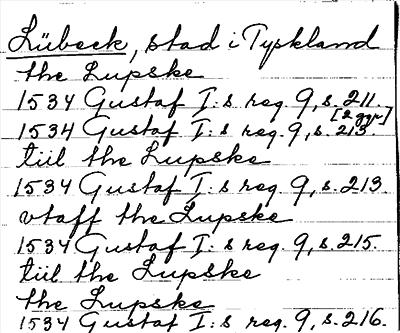 Lübeck, stad i Tyskland
the Lupske
1534 Gustaf I:s reg. 9, s. 211.
[2 ggr]
1534 Gustaf I:s reg. 9, s. 213
tiil the Lupske
1534 Gustaf I:s reg. 9, s. 213.
vtaff the Lupske
1534 Gustaf I:s reg. 9, s. 215.
tiil the Lupske
the Lupske
1534 Gustaf I:s reg. 9, s. 216.